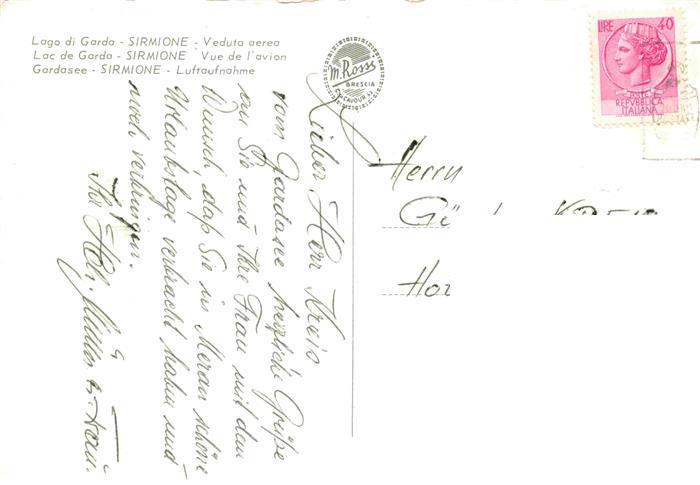 Lago di Garda - SIRMIONE - Veduta aerea
Lac de Garda - SIRMIONE Vue de l'avion
Gardasee - SIRMIONE - Luftaufnahme
m. Rossi
BRESCIA
CAVOUR
LIRE 40
POSTE
REPVBBLICA
ITALIANA
Lieber Herr Kreis
vom Gardasee herzliche Grüße
an Sie und Ihre Frau mit dem
Wunsch, daß Sie in Meran schöne
Urlaubstage verbracht haben und
noch verbringen.
Ihr
Herrn
Gü
Hor